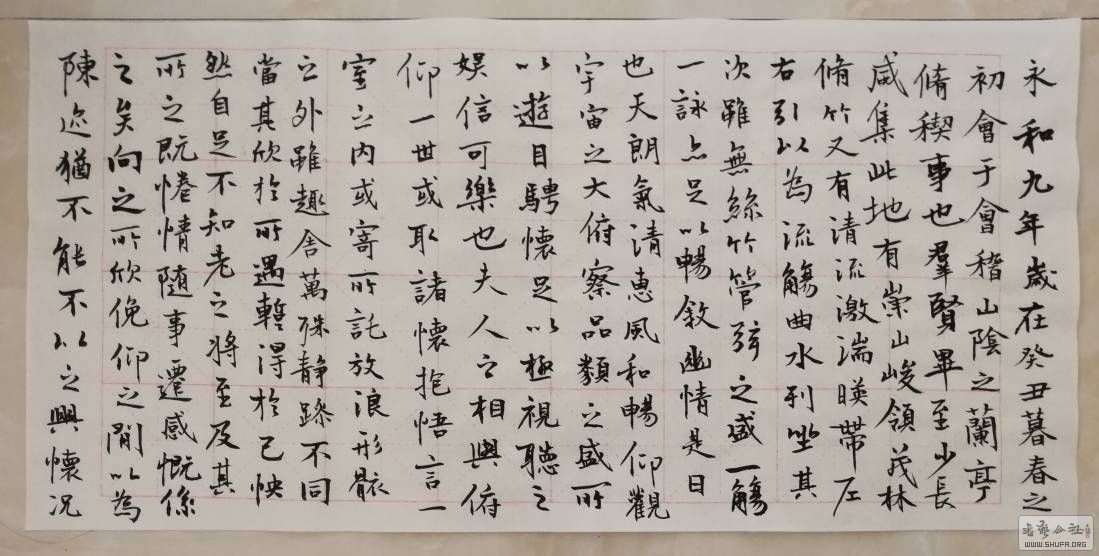 永和九年歲在癸丑暮春之
初會于會稽山陰之蘭亭
脩稧事也羣賢畢至少長
咸集此地有崇山峻領茂林
脩竹又有清流激湍暎帶左
右引以為流觴曲水列坐其
次雖無絲竹管弦之盛一觴
一詠亦足以暢敘幽情是日
也天朗氣清惠風和暢仰觀
宇宙之大俯察品類之盛所
以遊目騁懷足以極視聽之
娛信可樂也夫人之相與俯
仰一世或取諸懷抱悟言一
室之內或寄所託放浪形骸
之外雖趣舍萬殊靜躁不同
當其欣於所遇暫得於己怏
然自足不知老之將至及其
所之既惓情隨事遷感慨係
之矣向之所欣俛仰之閒以為
陳迹猶不能不以之興懷况
书艺公社
WWW.SHUFA.ORG